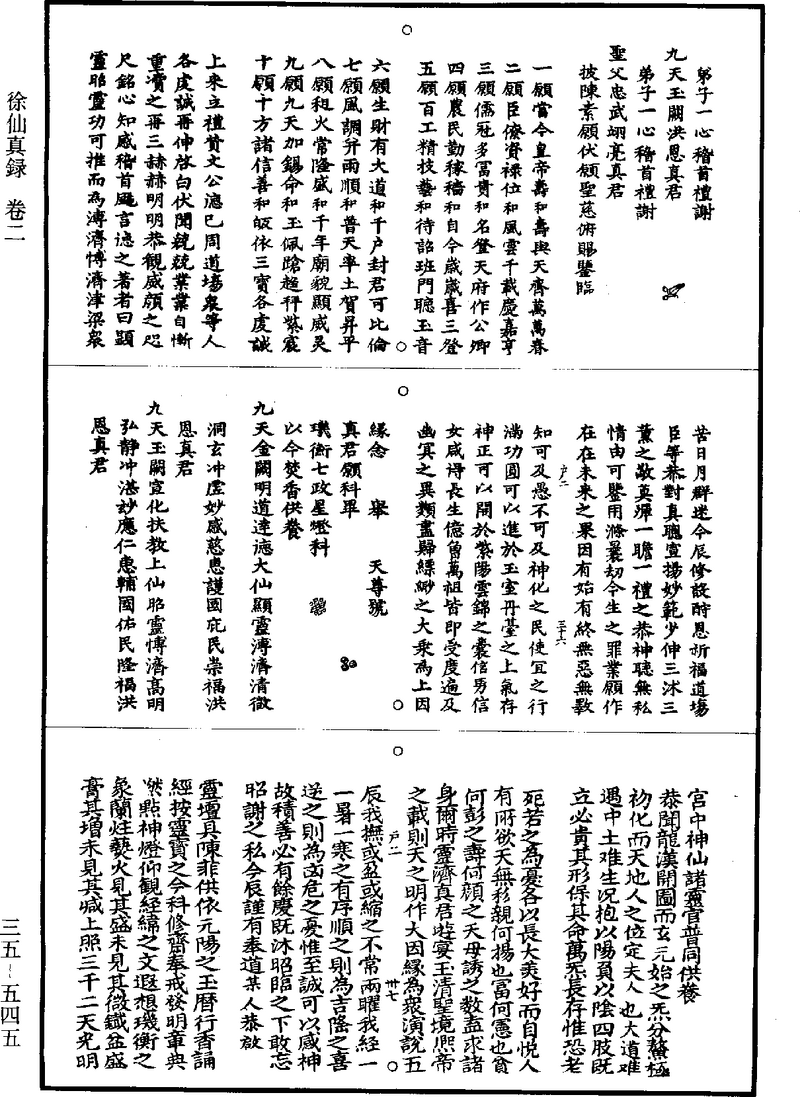 徐仙真録 卷二
弟子一心稽首禮謝
九天玉闕洪恩真君
弟子一心稽首禮謝
聖父忠武翊亮真君
披陳素願伏願聖慈俯賜鑒臨
一願當今皇帝壽和壽與天齊萬萬春
二願臣僚資祿位和風雲千載慶嘉亨
三願儒冠多冨貴和名登天府作公卿
四願農民勤稼穡和自今歲歲喜三登
五願百工精技藝和待詔班門聽玉音
六願生財有大道和千户封君可比倫
七願風調并雨順和普天率土賀昇平
八願租火常隆盛和千年廟貌顯威灵
九願九天加錫命和玉佩蹌趍秤紫宸
十願十方諸信善和皈依三寶各虔誠
上来立禮贊文公德已周道場衆等人
各虔誠再伸啓白伏聞兢兢業業自慚
重瀆之再三赫赫明明恭觀威顔之咫
尺銘心知感稽首颺言德之著者曰顕
靈昭靈功可推而為溥濟博濟津梁衆
苦日月群迷今辰修設酧恩祈福道塲
臣等恭對真聰宣揚妙範少伸三沐三
薰之敬寞殫一瞻一禮之恭神聽無私
情由可鑒用滌曩刼今生之罪業願作
在在未来之果因有始有終無惡無斁
知可及愚不可及神化之民使冝之行
滿功圓可以進於玉室丹臺之上氣存
神正可以開於紫陽雲錦之囊信男信
女咸得長生億曾萬祖皆即受度遍及
幽冥之異類盡歸縹緲之大乘為上因
縁念 舉 天尊號
真君願科畢
璣衡七政星燈科
以今焚香供養
九天金闕明道達德大仙顯靈溥濟清微
洞玄冲虛妙感慈惠護國庇民崇福洪
恩真君
九天玉闕宣化扶教上仙昭靈博濟高明
弘静冲湛妙應仁惠輔國佑民隆福洪
恩真君
宫中神仙諸靈官普同供養
恭聞龍漢開圖而玄元始之炁分鰲極
初化而天地人之位定夫人也大道难
遇中土难生况抱以陽負以陰四肢既
立必貴其形保其命萬炁長存惟恐老
死若之為憂各以長大美好而自悦人
有所欲天無私親何揚也冨何憲也貪
何彭之壽何顔之夭毋誘之数盍求諸
身爾時靈濟真君遊宴玉清聖境熈帝
之載則天之明作大因縁為衆演說五
辰我撫或盈或縮之不常兩曜我經一
一暑一寒之有序順之則為吉隂之喜
逆之則為凶危之憂惟至誠可以感神
故積善必有餘慶既沐昭臨之下敢忘
昭謝之私今辰謹有奉道某人恭啟
靈壇具陳菲供依元陽之玉曆行香誦
經按靈寶之令科修齋奉戒發明章典
燃點神燈仰觀經緯之文遐想璣衡之
象蘭炷爇火見其盛未見其微鐵盆盛
膏其增未見其减上照三千二天光明
户二
三十六
户二
卅七
三五～五四五